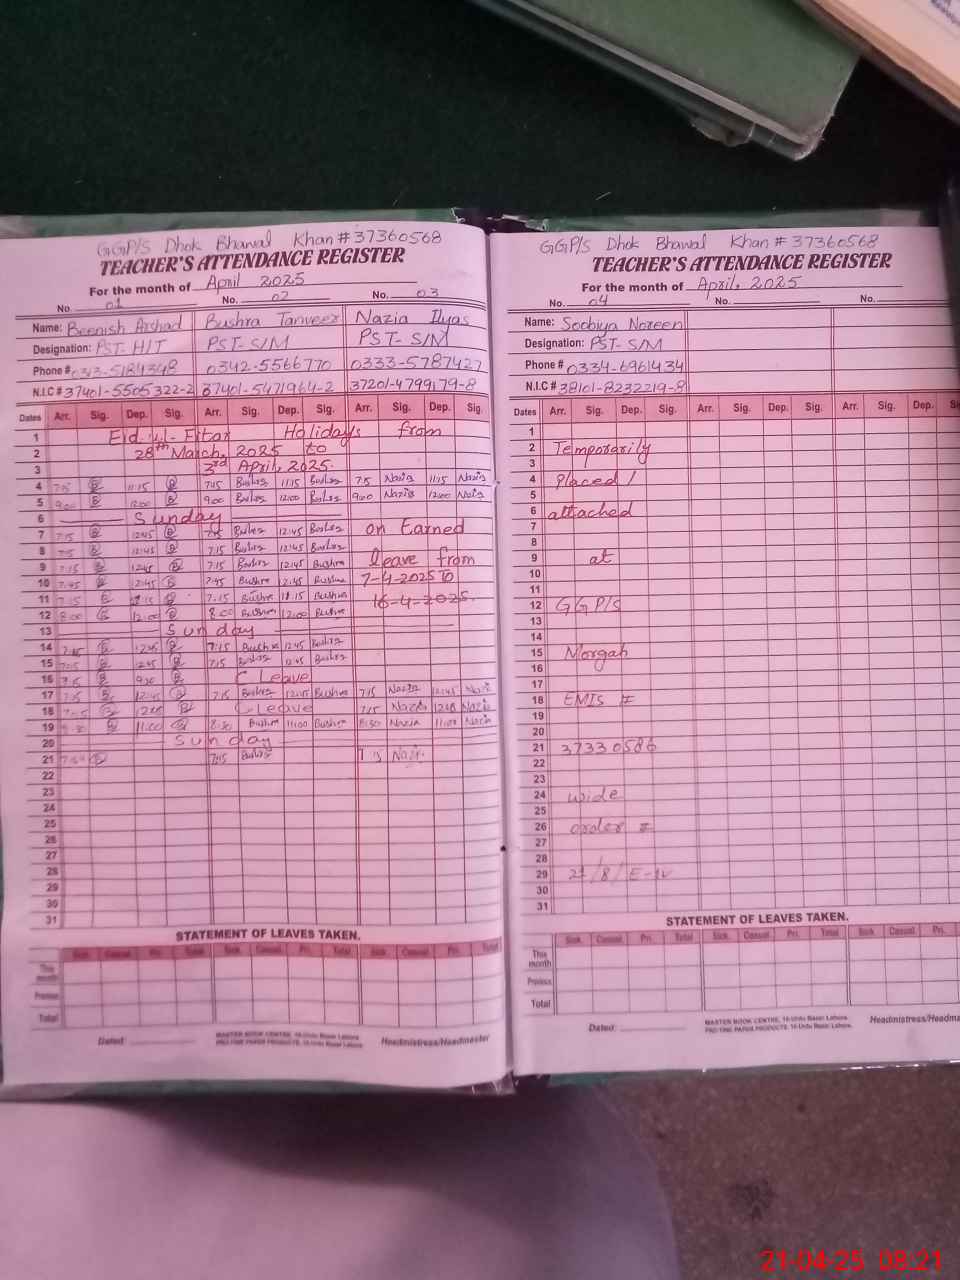 GGP/S Dhok Bhawal Khan # 37360568
TEACHER'S ATTENDANCE REGISTER
For the month of April 2025
No. 01 No. 02 No. 03
Name: Beenish Arshad Bushra Tanveer Nazia Ilyas
Designation: PST-H/T PST-S/M PST-S/M
Phone # 0343-5184348 0342-5566770 0333-5787427
N.I.C # 37401-5505322-2 37401-5471964-2 37201-4799179-8
Dates Arr. Sig. Dep. Sig. Arr. Sig. Dep. Sig. Arr. Sig. Dep. Sig.
1 Eid-ul-Fitar Holidays from
2 28th March, 2025 to
3 3rd April, 2025.
4 7:15 B 11:15 B 7:15 Bushra 11:15 Bushra 7:15 Nazia 11:15 Nazia
5 9:00 B 12:00 B 9:00 Bushra 12:00 Bushra 9:00 Nazia 12:00 Nazia
6 Sunday
7 7:15 B 12:45 B 7:15 Bushra 12:45 Bushra on Earned
8 7:15 B 12:45 B 7:15 Bushra 12:45 Bushra
9 7:15 B 12:45 B 7:15 Bushra 12:45 Bushra leave from
10 7:45 B 12:45 B 7:45 Bushra 12:45 Bushra 7-4-2025 to
11 7:15 B B 7:15 Bushra Bushra 16-4-2025.
12 8:00 B 12:00 B 8:00 Bushra 12:00 Bushra
13 Sunday
14 7:15 B 12:45 B 7:15 Bushra 12:45 Bushra
15 7:15 B 12:45 B 7:15 Bushra 12:45 Bushra
16 7:15 B B C Leave
17 7:15 B 12:45 B 7:15 Bushra 12:45 Bushra 7:15 Nazia 12:45 Nazia
18 7:15 B B C Leave 7:15 Nazia Nazia
19 B 11:00 B 8:30 Bushra 11:00 Bushra 8:30 Nazia 11:00 Nazia
20 Sunday
21 B 7:15 Bushra 7:15 Nazia
22
23
24
25
26
27
28
29
30
31
STATEMENT OF LEAVES TAKEN.
Sick. Casual. Pri. Total Sick. Casual. Pri. Total Sick. Casual. Pri. Total
This month
Previous
Total
MASTER BOOK CENTRE, 16-Urdu Bazar Lahore.
PRO-TINE PAPER PRODUCTS, 16-Urdu Bazar Lahore.
Dated: Headmistress/Headmaster
GGP/S Dhok Bhawal Khan # 37360568
TEACHER'S ATTENDANCE REGISTER
For the month of April, 2025
No. 04 No. No.
Name: Sobiya Noreen
Designation: PST-S/M
Phone # 0334-6961434
N.I.C # 38101-8232219-8
Dates Arr. Sig. Dep. Sig. Arr. Sig. Dep. Sig. Arr. Sig. Dep.
1
2 Temporarily
3
4 Placed /
5
6 attached
7
8
9 at
10
11
12 GGP/S
13
14
15 Morgah
16
17
18 EMIS #
19
20
21 37330586
22
23
24 wide
25
26 order #
27
28
29 21/8/E-IV
30
31
STATEMENT OF LEAVES TAKEN.
Sick. Casual. Pri. Total Sick. Casual. Pri. Total Sick. Casual. Pri.
This month
Previous
Total
MASTER BOOK CENTRE, 16-Urdu Bazar Lahore.
PRO-TINE PAPER PRODUCTS, 16-Urdu Bazar Lahore.
Dated: Headmistress/Headma
21-04-25 08:21